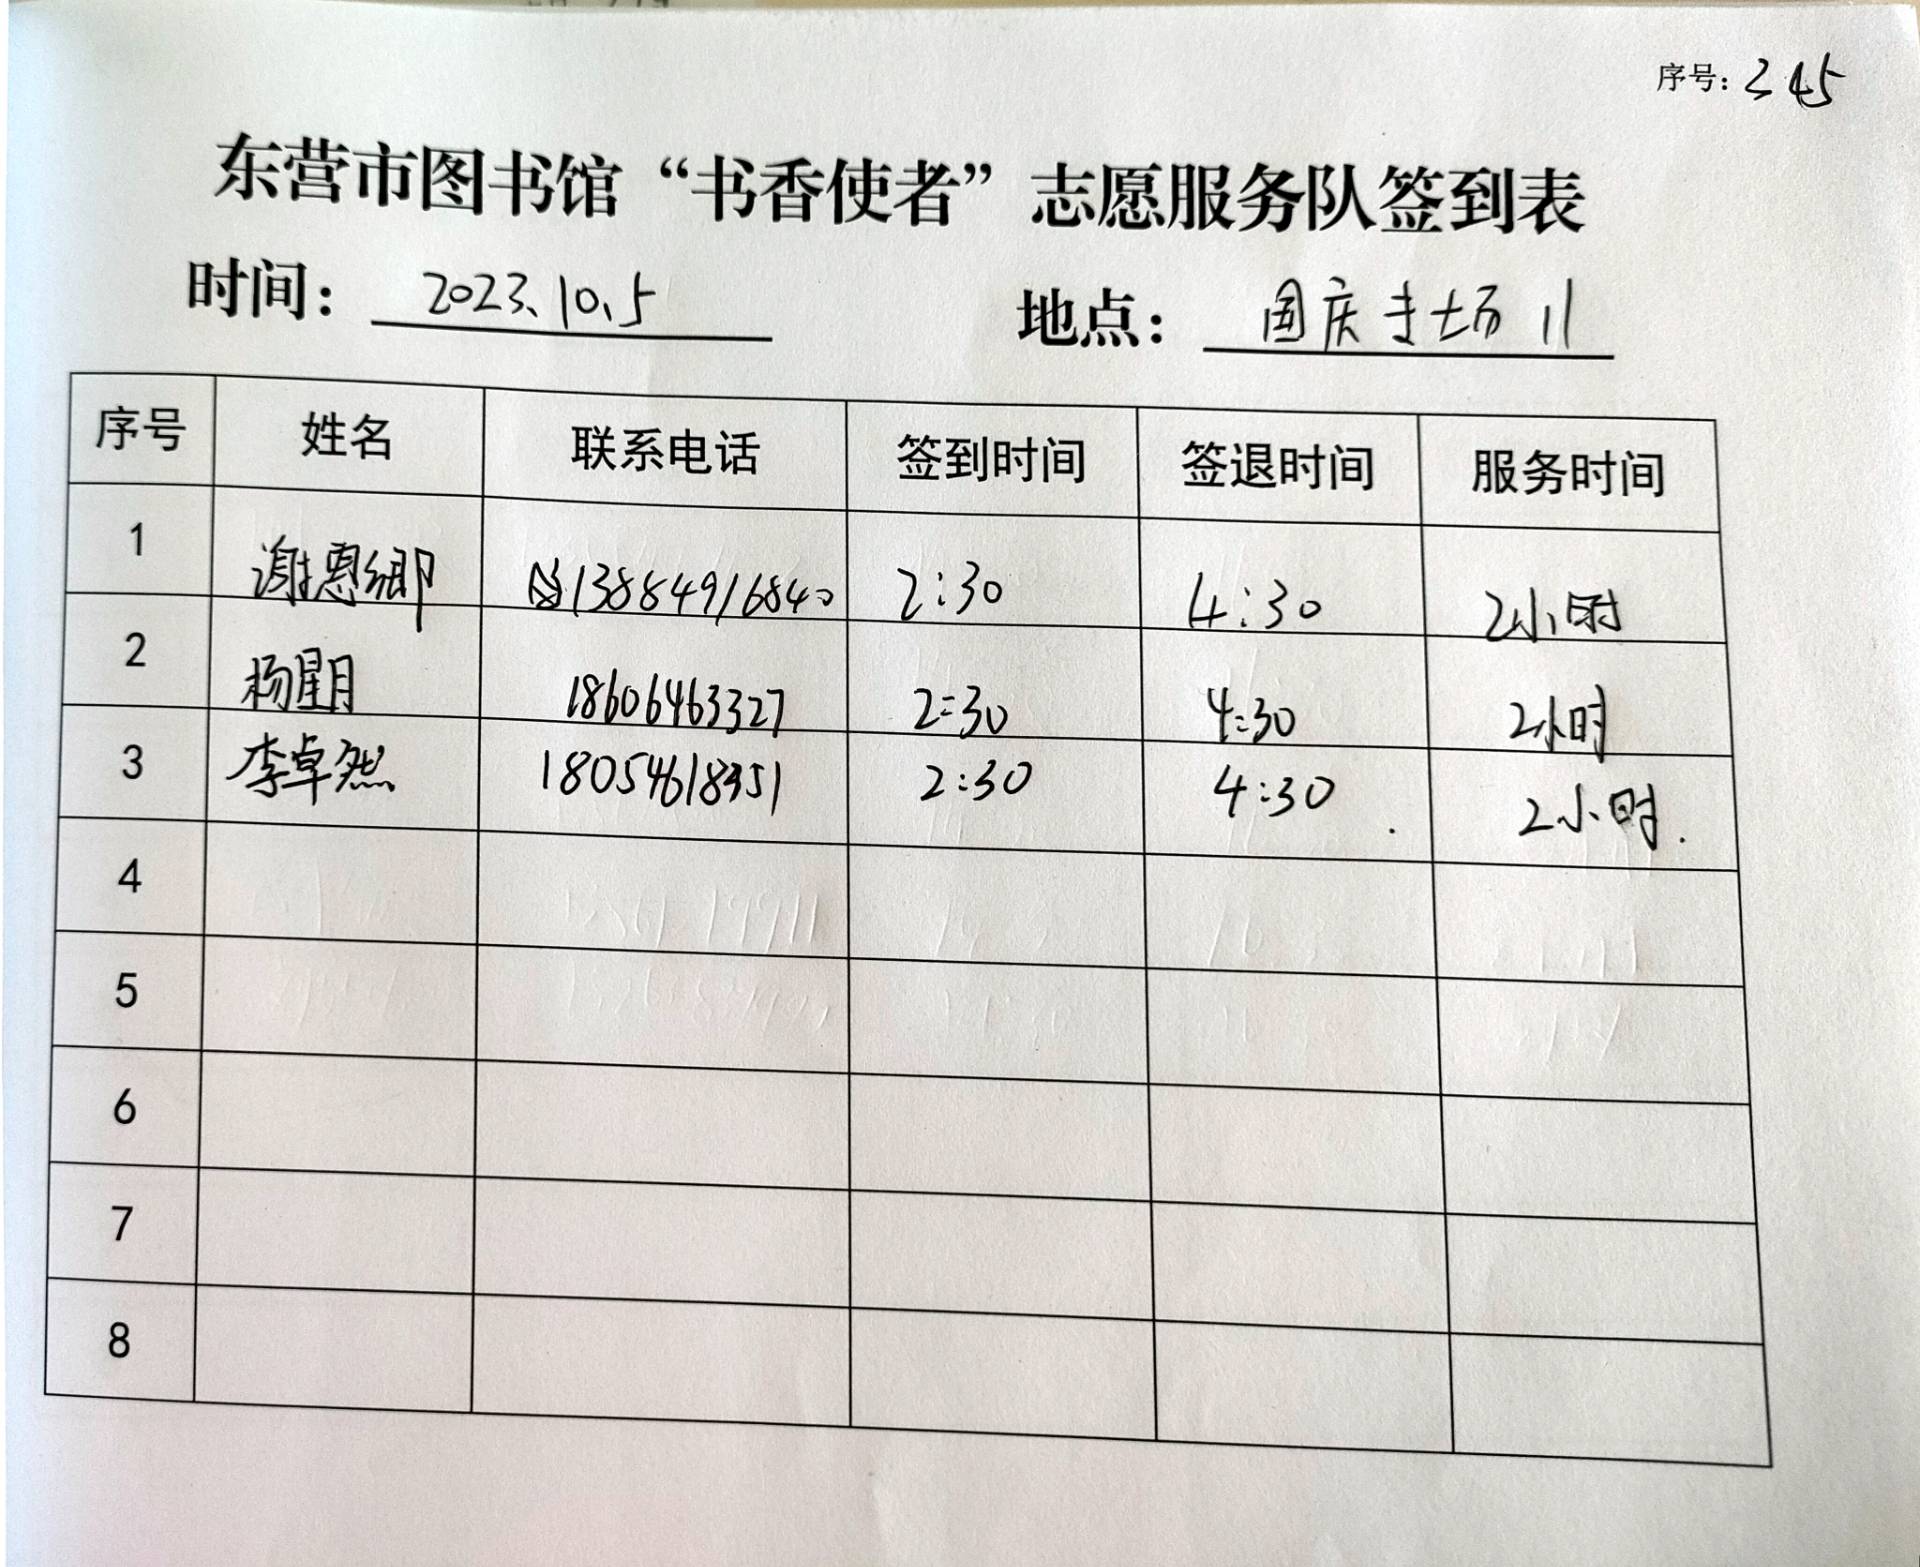 序号: 245
东营市图书馆“书香使者”志愿服务队签到表
时间: 2023.10.5 地点: 国庆专场11
序号 姓名 联系电话 签到时间 签退时间 服务时间
1 谢恩卿 13884916840 2:30 4:30 2小时
2 杨星月 18606463327 2:30 4:30 2小时
3 李卓然 18054618351 2:30 4:30 2小时.
4
5
6
7
8